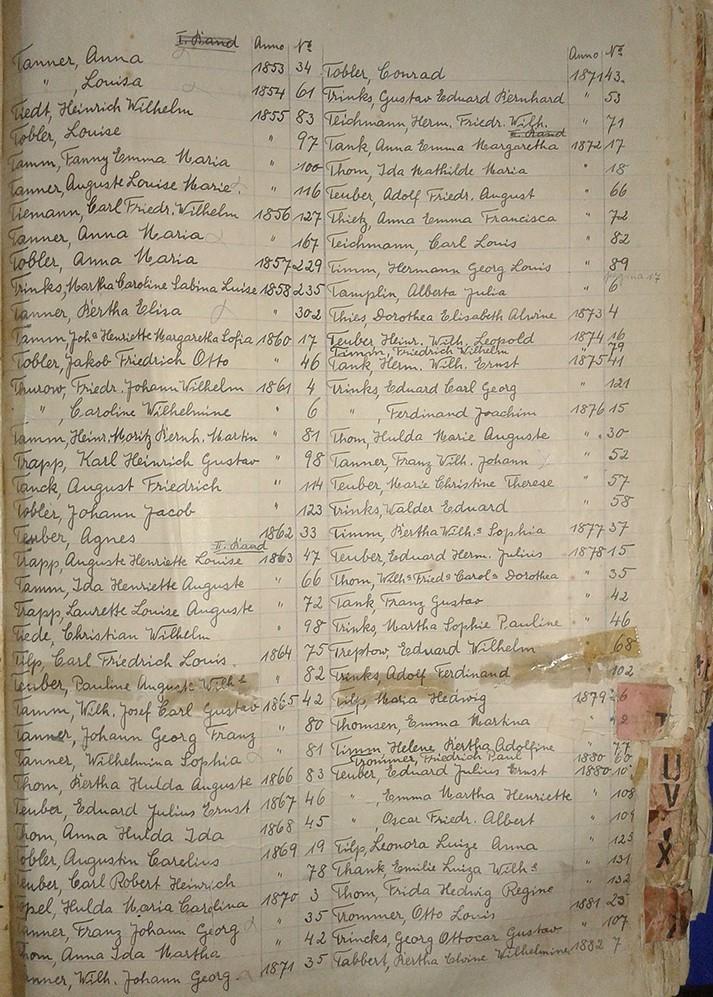 I. Band Anno No
Tanner, Anna 1853 34
" , Louisa 1854 61
Tiedt, Heinrich Wilhelm 1855 83
Tobler, Louise " 97
Tamm, Fanny Emma Maria " 100
Tanner, Auguste Louise Marie. " 116
Tiemann, Carl Friedr. Wilhelm 1856 127
Tanner, Anna Maria " 167
Tobler, Anna Maria 1857 229
Trinks, Martha Caroline Sabina Luise 1858 235
Tanner, Bertha Elisa " 302
Tamm, Joha Henriette Margaretha Sofia 1860 17
Tobler, Jakob Friedrich Otto " 46
Thurow, Friedr. Johann Wilhelm 1861 4
" , Caroline Wilhelmine " 6
Tamm, Heinr. Moritz Bernh. Martin " 81
Trapp, Karl Heinrich Gustav " 98
Tanck, August Friedrich " 114
Tobler, Johann Jacob " 123
Teuber, Agnes 1862 33
II. Band
Trapp, Auguste Henriette Louise 1863 47
Tamm, Ida Henriette Auguste " 66
Trapp, Laurette Louise Auguste " 72
Tiede, Christian Wilhelm " 98
Tilp, Carl Friedrich Louis. 1864 75
Teuber, Pauline Auguste Wilhe " 82
Tamm, Wilh. Josef Carl Gustav 1865 42
Tanner, Johann Georg Franz " 80
Tanner, Wilhelmina Sophia " 81
Thom, Bertha Hulda Auguste 1866 83
Teuber, Eduard Julius Ernst 1867 46
Thom, Anna Hulda Ida 1868 45
Tobler, Augustin Carelius 1869 19
Teuber, Carl Robert Heinrich " 78
Hulda Maria Carolina 1870 3
Tanner, Franz Johann Georg " 35
Thom, Anna Ida Martha " 42
Tanner, Wilh. Johann Georg. 1871 35
Anno No
Tobler, Conrad 1871 43.
Trinks, Gustav Eduard Bernhard " 53
Teichmann, Herm. Friedr. Wilh. " 71
II. Band
Tank, Anna Emma Margaretha 1872 17
Thom, Ida Mathilde Maria " 18
Teuber, Adolf Friedr. August " 66
Thietz, Anna Emma Francisca " 72
Teichmann, Carl Louis " 82
Timm, Hermann Georg Louis " 89
Tamplin, Alberta Julia " 6
Thies, Dorothea Elisabeth Alwine 1873 4
Teuber, Heinr. Wilh. Leopold 1874 16
Timm, Friedrich Wilhelm 79
Tank, Herm. Wilh. Ernst 1875 41
Trinks Eduard Carl Georg " 121
" , Ferdinand Joachim 1876 15
Thom, Hulda Marie Auguste " 30
Tanner, Franz Wilh. Johann " 52
Teuber, Marie Christine Therese " 57
Trinks, Walder Eduard " 58
Timm, Bertha Wilhe Sophia 1877 37
Teuber, Eduard Herm. Julius 1878 15
Thom, Wilhe Friede Carola Dorothea " 35
Tank, Franz Gustav " 42
Trinks, Martha Sophie Pauline " 46
Treptow, Eduard Wilhelm 68
Trinks, Adolf Ferdinand 102
Tilp, Maria Hedwig 1879
Thomsen, Emma Martina "
Timm Helene Bertha Adolfine " 77
Trommer, Friedrich Paul 1880 60
Teuber, Eduard Julius Ernst 1880
" , Emma Martha Henriette " 108
" , Oscar Friedr. Albert " 109
Tilp, Leonora Luize Anna " 123
Thank, Emilie Luiza Wilhe " 131
Thom, Frida Hedwig Regine " 132
Trommer, Otto Louis 1881 23
Trincks, Georg Ottocar Gustav " 107
Tabbert, Bertha Elvine Wilhelmine 1882 7
T
U
V
X